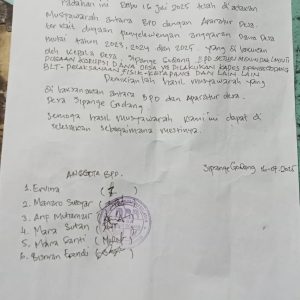 Padahari ini Rabu 16 juli 2025 telah di adakan
Musyawarah antara BPD dengan Aparatur Desa.
terkait dugaan penyelewengan anggaran Dana Desa
mulai tahun 2023, 2024 dan 2025. yang di lakukan
oleh Kepala Desa Sipange Godang. BPD SEGERA
DUGAAN KORUPSI DANA DESA YG DILAKUKAN KADES
BLT-PELAKSANAAN FISIK-KETAPANG DAN LAIN LAIN
Demikianlah hasil musyawarah yang
di laksanakan antara BPD dan Aparatur desa
Desa Sipange Godang.
Semoga hasil musyawarah kami ini dapat di
selesaikan sebagaimana mestinya.
Sipange Godang, 16-07-2025
ANGGOTA BPD.
1. Ervina
2. Manaon Siregar
3. Anp Mutamar
4. Mara Sutan
5. Maira Santi
6. Efendi